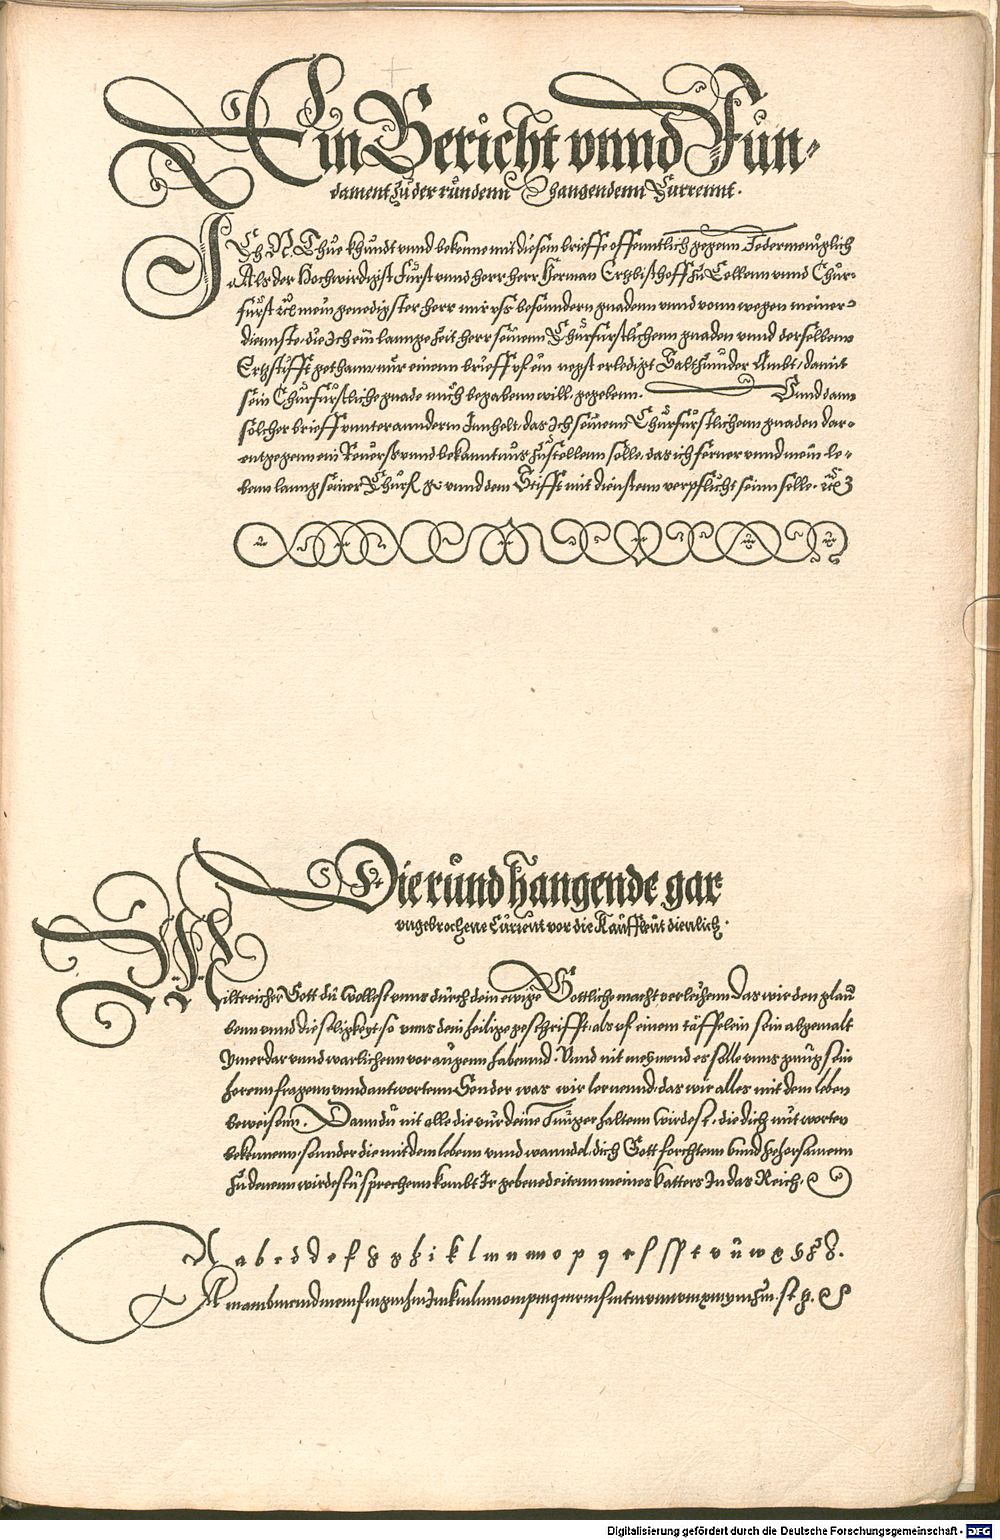 Ein Bericht vnnd Fun-
dament zu der rundenn hangendenn Currennt.
Ich N. Thue khundt vnnd bekenne mit diesem brieffe offenntlich gegenn Jedermeniglich
Als der Hochwirdigst Fürst vnnd herr herr Herman Ertzbischoff zu Collenn vnnd Chur-
fürst mein genedigster herr mir vss besondern gnadenn vnnd vonn wegen meiner
dienste, die Ich ein lannge Zeit herr seinenn Churfurstlichenn gnaden vnnd derselbenn
Ertzstifft gethann, mir einenn brieff vf ein negst erledigt Ambt, damit
sein Churfürstliche gnade mich begabenn will, gegebenn. Vnnd dann
solcher brieff vnnter annderm Innhelt, das Ich seinenn Churfürstlichenn gnaden dar-
entgegenn ein Reuerss vnnd bekanntnus zustellenn solle, das ich ferner vnnd mein le-
benn lanng seiner Churf. g. vnnd dem Stifft mit dienstenn verpflicht seinn solle.
Die rund hangende gar
vngebrochene Currennt vor die Kauffleut dienlich.
Miltreicher Gott du wollest vnns durch dein ewige Gottliche macht verleihenn Das wir den glau
benn vnnd die seligkeyt, so vnns dein heilige geschrifft, als vf einem täffelein sein abgemalt
ymerdar vnnd warlichenn vor augenn habennd. Vnnd nit meynend es solle vnns gnug sein
horenn fragenn vnnd antwortenn Sonder was wir lernennd, das wir alles mit dem leben
beweisenn. Dann du nit alle die vür deine Junger haltenn wirdest, die dich mit worten
bekennenn, sonnder die mit dem lebenn vnnd wanndel, dich Gott forchtenn vnnd gehorsamenn
Zu denenn wirdestu sprechenn kombt Ir gebenedeitenn meines Vatters In das Reich.
A a b c d d e f g g h i k l m n m o p q r s ß t v u w x y z z.